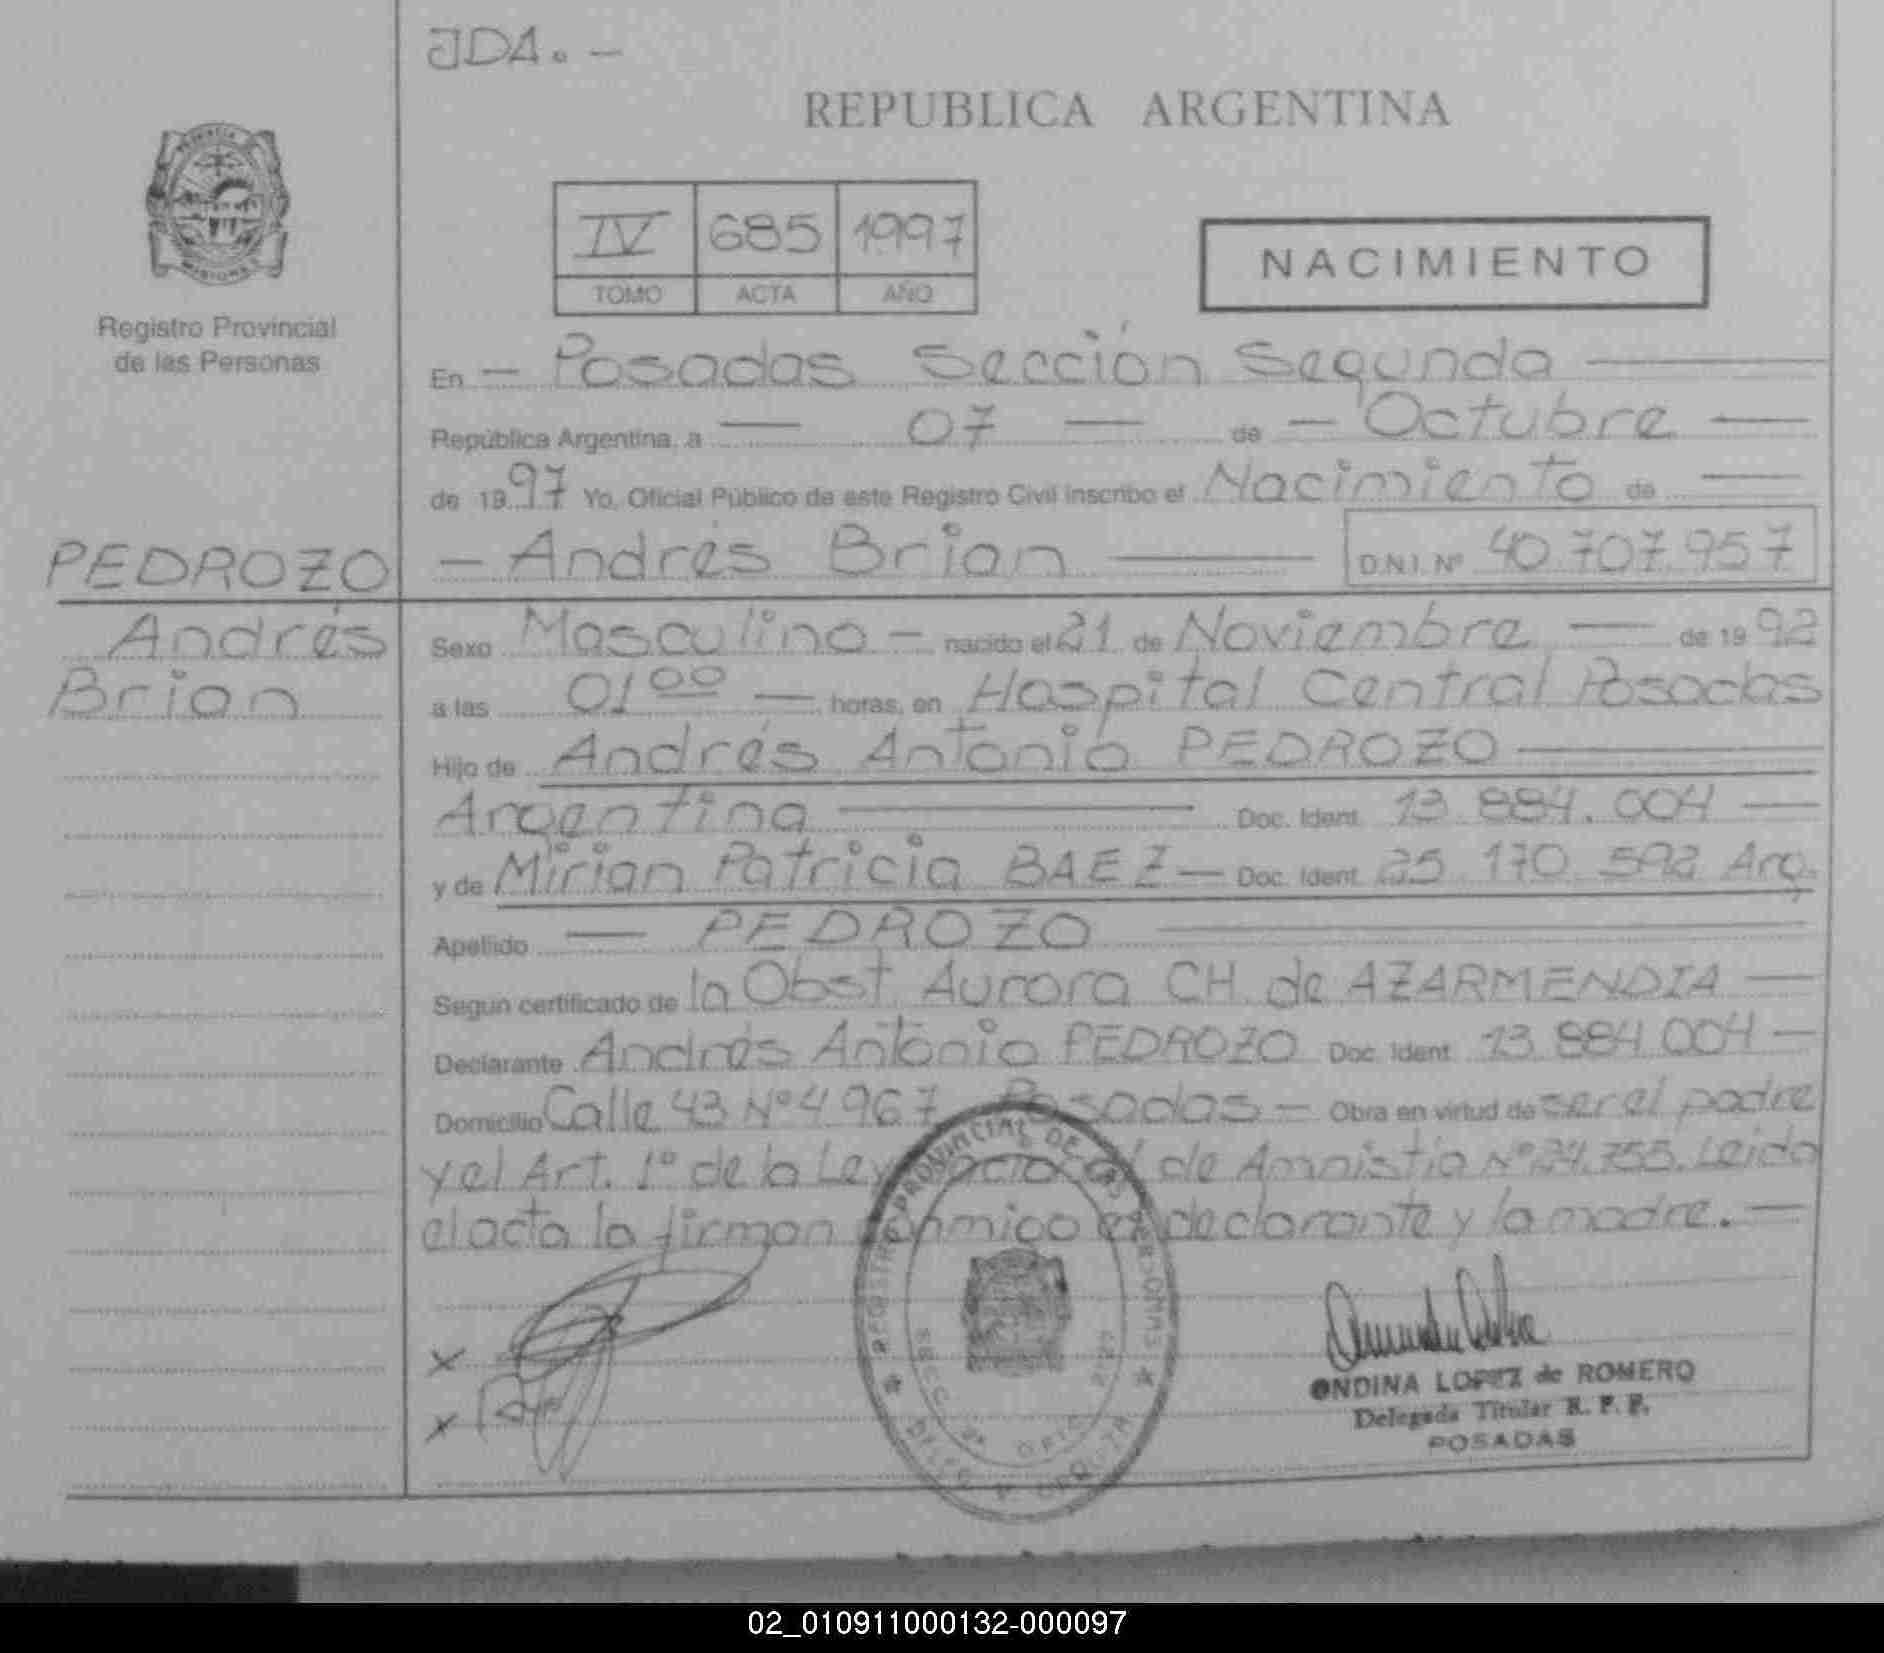 JDA. -
REPUBLICA ARGENTINA
IV 685 1997
TOMO ACTA AÑO
NACIMIENTO
Registro Provincial
de las Personas
En - Posadas Sección Segunda
República Argentina, a - 07 - de - Octubre -
de 1997 Yo, Oficial Público de este Registro Civil inscribo el Nacimiento de -
PEDROZO - Andrés Brian D.N.I. Nº 40.707.957
Andrés
Brian
Sexo Masculino - nacido el 21 de Noviembre - de 1992
a las 01 00 - horas, en Hospital Central Posadas
Hijo de Andrés Antonio PEDROZO
Argentina Doc. Ident. 13.884.004 -
y de Mirian Patricia BAEZ - Doc. Ident. 25.170.592 Arg.
Apellido - PEDROZO
Segun certificado de la Obst. Aurora CH. de AZARMENDIA -
Declarante Andrés Antonio PEDROZO Doc. Ident. 13.884.004 -
Domicilio Calle 43 Nº 4967 Posadas - Obra en virtud de ser el padre
y el Art. 1º de la Ley Nacional de Amnistia Nº 24.755. Leida
el acta la firman conmigo el declarante y la madre. -
x
x
REGISTRO PROVINCIAL DE LAS PERSONAS
SECC. 2ª
ONDINA LOPEZ de ROMERO
Delegada Titular R. P. P.
POSADAS
02_010911000132-000097